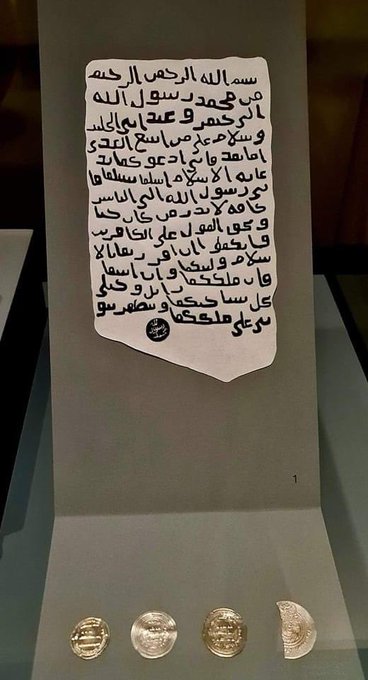 بسم الله الرحمن الرحيم
من محمد رسول الله
الى جيفر وعبد ابني الجلند
وسلام على من اتبع الهدى
اما بعد فاني ادعوكما بد
عاية الاسلام اسلما تسلما فا
ني رسول الله الى الناس
كافة لانذر من كان حيا
ويحق القول على الكافرين
فانكما ان اقررتما بالا
سلام وليتكما وان ابيتما
فان ملككما زايل وخيلي
تحل بساحتكما وتظهر نبو
تي على ملككما
الله
رسول
محمد
1